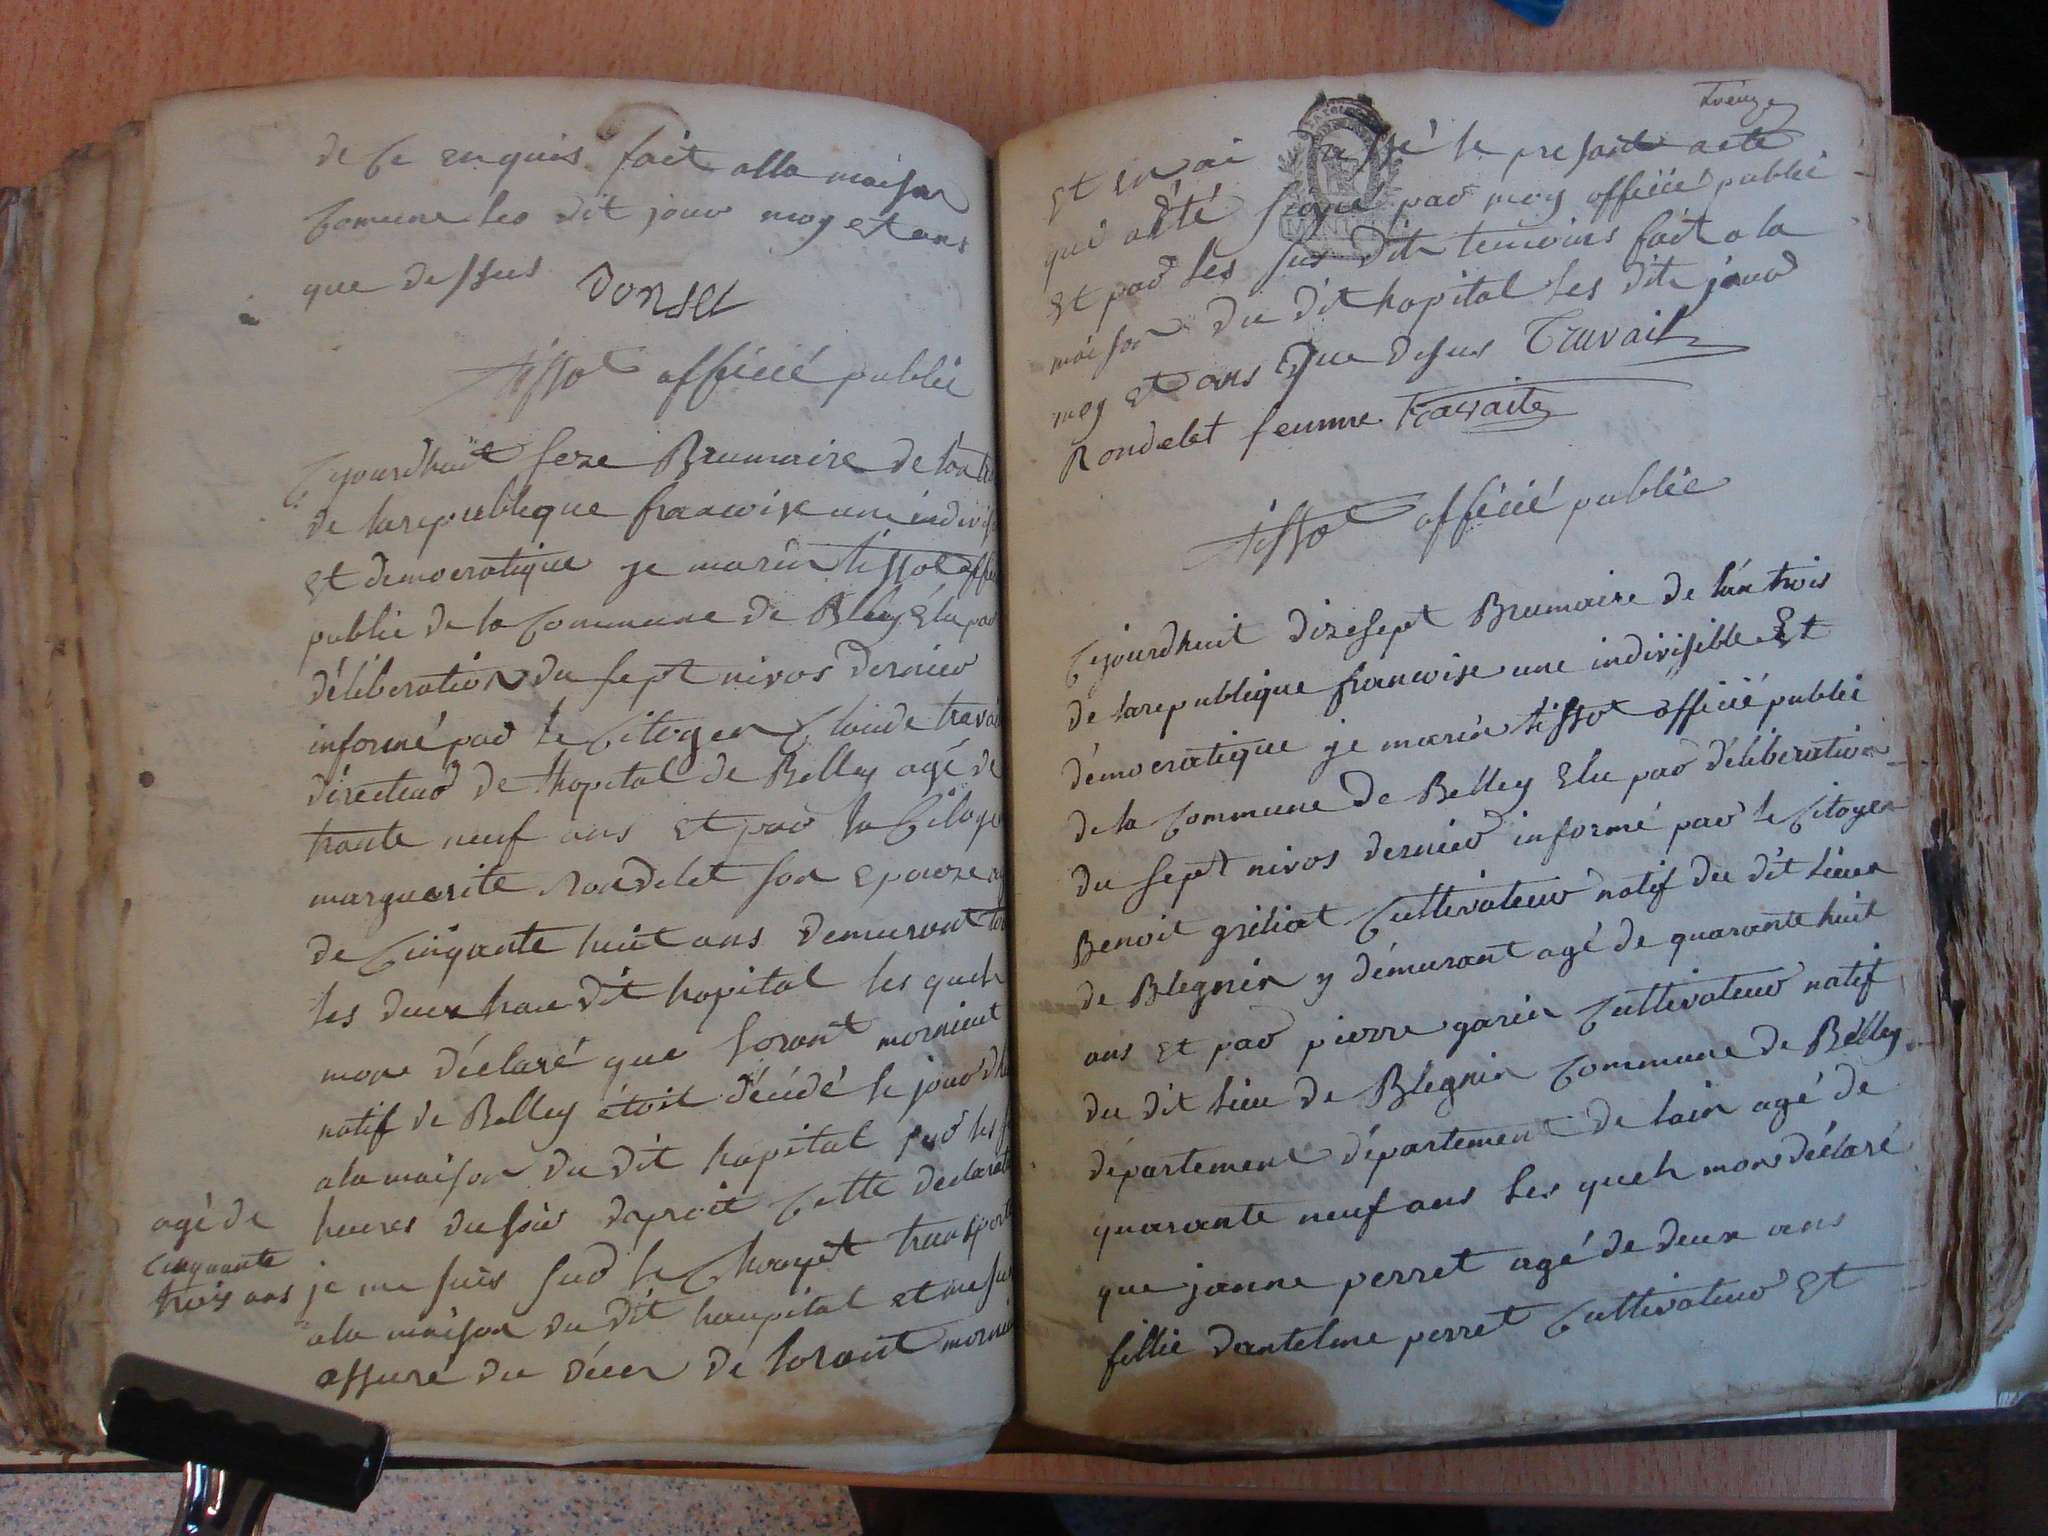 de Ce enquis fait alla maison
Comune les dit jour moy et ans
que dessus Donset
tissot officié public
Cejourdhuit seze Brumaire de lan
de larepublique francoise une
et democratique je marin tissot
public de la Commune de Belley Elu par
déliberation du sept nivos dernier
informé par le Citoyen Claude
directeur de lhopital de Belley agé de
trante neuf ans et par la
marguerite Rondelet son epouze
de Cinquante huit ans demurant
les deux dit hopital les quels
mons déclaré que lorant mornieut
natif de Belley étoit décédé le
ala maison du dit hopital sur les
agé de
Cinquante
trois ans
heures du soir daprait Cette
je me suis sur le Champt
ala maison du dit haupital et me
assuré du déces de lorant
treuze
Et en ai le presant acte
qui a été signé par moy officié public
Et par les sus dits temoins fait a la
maison du dit hopital les dits jour
moy Et ans que desus Travail
Rondelet femme
tissot officié public
Cejourdhuit dizesept Brumaire de lan trois
de larepublique francoise une indivisible Et
démocratique je marin tissot officié public
de la Commune de Belley Elu par déliberation
du sept nivos dernier informé par le Citoyen
Benoit griliat Cultivateur natif du dit lieux
de Blegnin y démurant agé de quarante huit
ans et par pierre garin Cultivateur natif
du dit lieu de Blegnin Commune de Belley
département département de lain agé de
quarante neuf ans les quels mons déclaré
que janne perret agé de deux ans
fillie dantelme perret Cultivateur Et